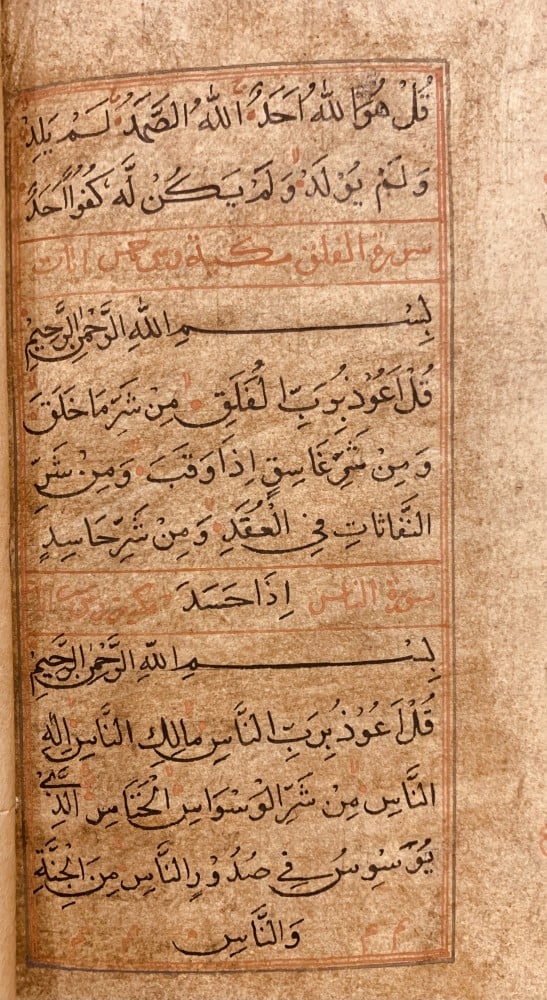 قُلْ هُوَ اللّٰهُ اَحَدٌ اَللّٰهُ الصَّمَدُ لَمْ يَلِدْ
وَلَمْ يُوْلَدْ وَلَمْ يَكُنْ لَهُ كُفُوًا اَحَدٌ
سورة الفلق مكية وهى خمس ايات
بِسْمِ اللّٰهِ الرَّحْمٰنِ الرَّحِيْمِ
قُلْ اَعُوْذُ بِرَبِّ الْفَلَقِ مِنْ شَرِّ مَا خَلَقَ
وَمِنْ شَرِّ غَاسِقٍ اِذَا وَقَبَ وَمِنْ شَرِّ
النَّفَّاثَاتِ فِي الْعُقَدِ وَمِنْ شَرِّ حَاسِدٍ
اِذَا حَسَدَ سورة الناس
بِسْمِ اللّٰهِ الرَّحْمٰنِ الرَّحِيْمِ
قُلْ اَعُوْذُ بِرَبِّ النَّاسِ مَالِكِ النَّاسِ اِلٰهِ
النَّاسِ مِنْ شَرِّ الْوَسْوَاسِ الْخَنَّاسِ الَّذِيْ
يُوَسْوِسُ فِيْ صُدُوْرِ النَّاسِ مِنَ الْجِنَّةِ
وَالنَّاسِ